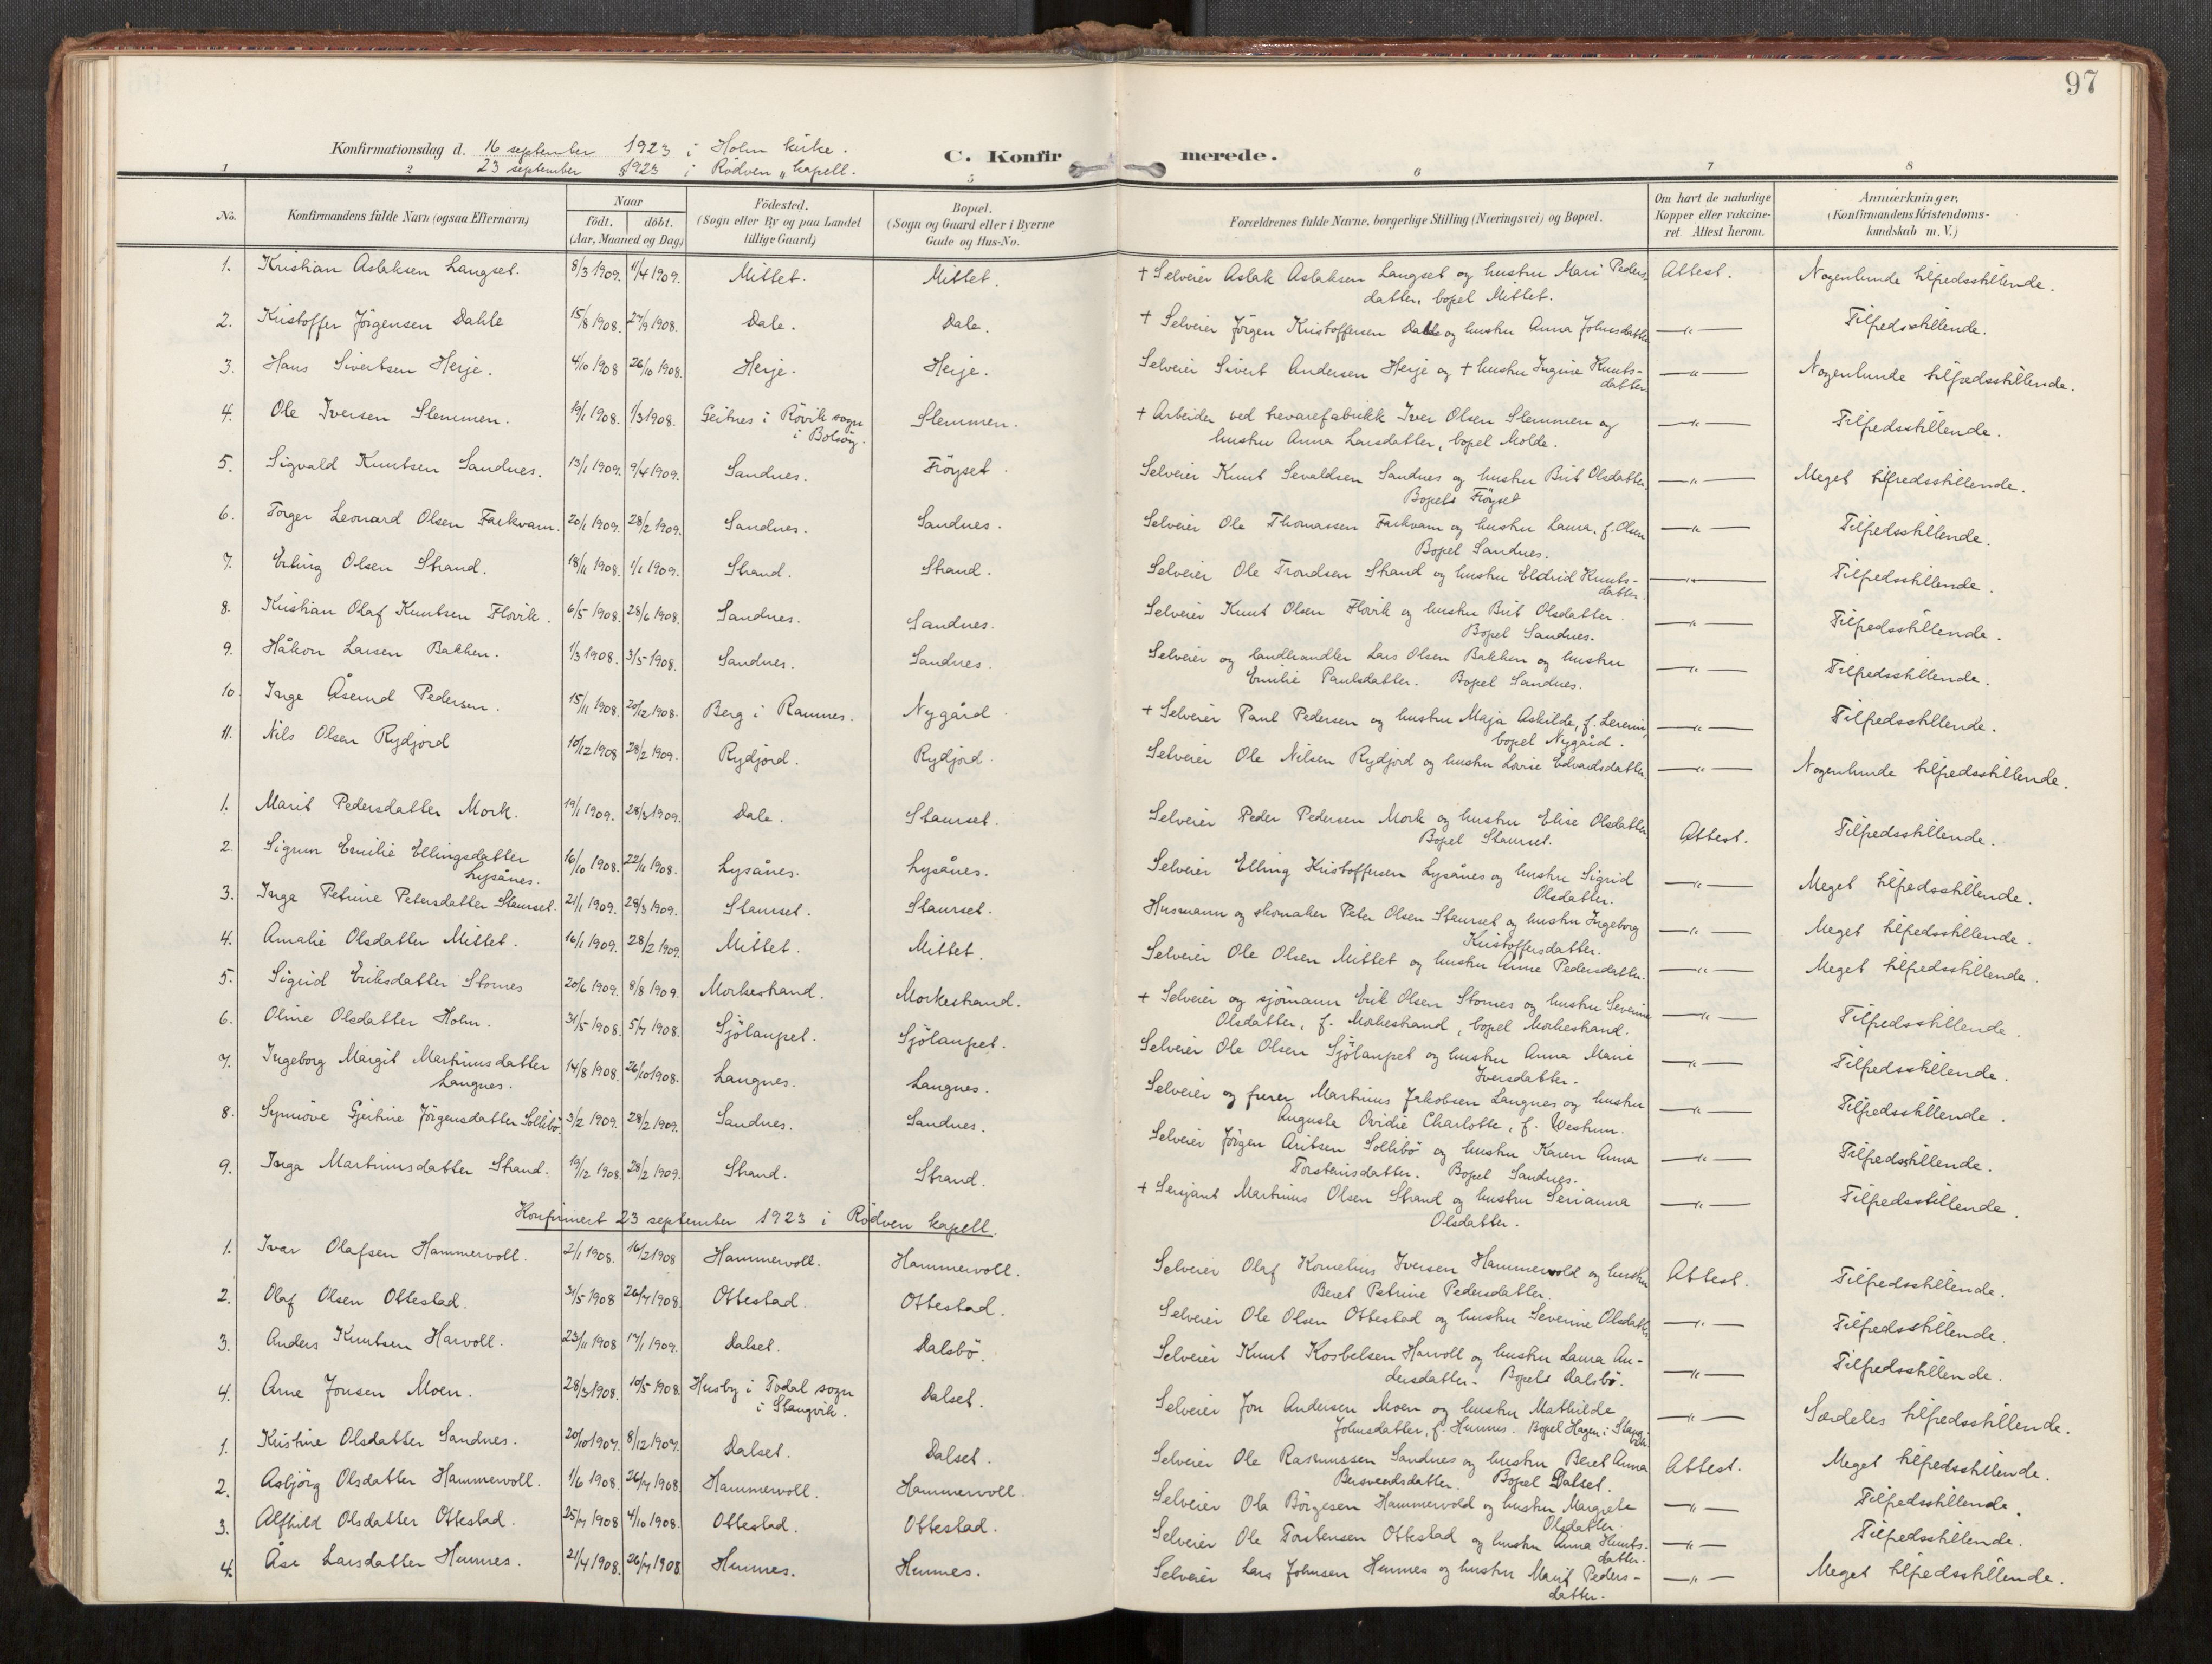 97
Konfirmationsdag d. 16 september 1923 i Holm kirke.
23 september 1923 i Rödven „ kapell.
C. Konfirmerede.
1 2 5 6 7 8
No. Konfirmandens fulde Navn (ogsaa Efternavn) Naar födt. döbt. (Aar, Maaned og Dag) Födested. (Sogn eller By og paa Landet tillige Gaard) Bopæl. (Sogn og Gaard eller i Byerne Gade og Hus-No. Forældrenes fulde Navne, borgerlige Stilling (Næringsvei) og Bopæl. Om havt de naturlige Kopper eller vakcineret. Attest herom. Anmærkninger, (Konfirmandens Kristendomskundskab m. V.)
1. Kristian Aslaksen Langset. 8/3 1909. 11/4 1909. Mittet. Mittet. + Selveier Aslak Aslaksen Langset og hustru Mari Pedersdatter, bopel Mittet. Attest. Nogenlunde tilfredsstillende.
2. Kristoffer Jörgensen Dahle 15/8 1908. 27/9 1908. Dale. Dale. + Selveier Jörgen Kristoffersen Dahle og hustru Anna Johnsdatter —„— Tilfredsstillende.
3. Hans Sivertsen Herje. 4/10 1908 26/10 1908. Herje. Herje. Selveier Sivert Andersen Herje og + hustru Ingine Knutsdatter —„— Nogenlunde tilfredsstillende.
4. Ole Iversen Slemmen. 19/1 1908. 1/3 1908. Geitnes i Rövik sogn i Bolsöy. Slemmen. + Arbeider ved trevarefabrikk Iver Olsen Slemmen og hustru Anna Larsdatter, bopel Molde. —„— Tilfredsstillende.
5. Sigvald Knutsen Sandnes. 13/1 1909. 9/4 1909. Sandnes. Fröyset. Selveier Knut Sevaldsen Sandnes og hustru Brit Olsdatter. Bopel Fröyset —„— Meget tilfredsstillende.
6. Torger Leonard Olsen Farkvam. 20/1 1909. 28/2 1909. Sandnes. Sandnes. Selveier Ole Thomassen Farkvam og hustru Laura, f. Olsen Bopel Sandnes. —„— Tilfredsstillende.
7. Erling Olsen Strand. 18/11 1908. 1/1 1909. Strand. Strand. Selveier Ole Trondsen Strand og hustru Eldrid Knutsdatter. —„— Tilfredsstillende.
8. Kristian Olaf Knutsen Flovik. 6/5 1908. 28/6 1908. Sandnes. Sandnes. Selveier Knut Olsen Flovik og hustru Brit Olsdatter. Bopel Sandnes. —„— Tilfredsstillende.
9. Håkon Larsen Bakken. 1/3 1908. 3/5 1908. Sandnes. Sandnes. Selveier og landhandler Lars Olsen Bakken og hustru Emilie Paulsdatter. Bopel Sandnes. —„— Tilfredsstillende.
10. Inge Åsmund Pedersen. 15/11 1908. 20/12 1908. Berg i Ramnes. Nygård. + Selveier Paul Pedersen og hustru Maja Askilde, bopel Nygård. —„— Tilfredsstillende.
11. Nils Olsen Rydjord 10/12 1908 28/2 1909. Rydjord. Rydjord. Selveier Ole Nilsen Rydjord og hustru Lovise Edvardsdatter —„— Nogenlunde tilfredsstillende.
1. Marit Pedersdatter Mork. 19/1 1909. 28/3 1909. Dale. Staurset. Selveier Peder Pedersen Mork og hustru Elise Olsdatter Bopel Staurset. Attest. Tilfredsstillende.
2. Sigrun Emilie Ellingsdatter Lysånes. 16/10 1908. 22/11 1908. Lysånes. Lysånes. Selveier Elling Kristoffersen Lysånes og hustru Sigrid Olsdatter. —„— Meget tilfredsstillende.
3. Inga Petrine Petersdatter Staurset. 21/1 1909. 28/3 1909. Staurset. Staurset. Husmann og skomaker Peter Olsen Staurset og hustru Ingeborg Kristoffersdatter. —„— Meget tilfredsstillende.
4. Amalie Olsdatter Mittet. 16/1 1909. 28/2 1909. Mittet. Mittet. Selveier Ole Olsen Mittet og hustru Anne Pedersdatter. —„— Meget tilfredsstillende.
5. Sigrid Eriksdatter Stornes 20/6 1909. 8/8 1909. Morkestrand. Morkestrand. + Selveier og sjömann Erik Olsen Stornes og hustru Severine Olsdatter, f. Morkestrand, bopel Morkestrand. —„— Tilfredsstillende.
6. Oline Olsdatter Holm. 31/5 1908. 5/7 1908. Sjölaupet. Sjölaupet. Selveier Ole Olsen Sjölaupet og hustru Anna Marie Iversdatter. —„— Tilfredsstillende.
7. Ingeborg Margit Martinusdatter Langnes. 14/8 1908. 26/10 1908. Langnes. Langnes. Selveier og furer Martinus Jakobsen Langnes og hustru Augusta Ovidie Charlotte, f. Westrum. —„— Tilfredsstillende.
8. Synnöve Gjertine Jörgensdatter Sollibö. 3/2 1909. 28/2 1909. Sandnes. Sandnes. Selveier Jörgen Aritsen Sollibö og hustru Karen Anna Torsteinsdatter. Bopel Sandnes. —„— Tilfredsstillende.
9. Inga Martinusdatter Strand. 19/12 1908. 28/2 1909. Strand. Strand. + Sersjant Martinus Olsen Strand og hustru Serianna Olsdatter. —„— Tilfredsstillende.
Konfirmert 23 september 1923 i Rödven kapell.
1. Ivar Olafsen Hammervoll. 2/1 1908. 16/2 1908 Hammervoll. Hammervoll. Selveier Olaf Kornelius Iversen Hammervold og hustru Beret Petrine Pedersdatter. Attest. Tilfredsstillende.
2. Olaf Olsen Ottestad. 31/5 1908 26/7 1908. Ottestad. Ottestad. Selveier Ole Olsen Ottestad og hustru Severine Olsdatter —„— Tilfredsstillende.
3. Anders Knutsen Harvoll. 23/11 1908 17/1 1909. Dalset. Dalsbö. Selveier Knut Kosbelsen Harvoll og hustru Laura Andersdatter. Bopel Dalsbö. —„— Tilfredsstillende.
4. Arne Jonsen Moen. 28/3 1908. 10/5 1908. Husby i Todal sogn i Stangvik. Dalset. Selveier Jon Andersen Moen og hustru Mathilde Johnsdatter, f. Hunnes. Bopel Hagen i Stangvik. —„— Særdeles tilfredsstillende.
1. Kristine Olsdatter Sandnes. 20/10 1907. 8/12 1907. Dalset. Dalset. Selveier Ole Rasmussen Sandnes og hustru Beret Anna Bersvendsdatter. Bopel Dalset. Attest. Meget tilfredsstillende.
2. Asbjörg Olsdatter Hammervoll. 1/6 1908. 26/7 1908. Hammervoll. Hammervoll. Selveier Ola Börgesen Hammervold og hustru Margrete Olsdatter. —„— Tilfredsstillende.
3. Alfhild Olsdatter Ottestad. 25/7 1908 4/10 1908. Ottestad. Ottestad. Selveier Ole Torstensen Ottestad og hustru Anna Knutsdatter. —„— Tilfredsstillende.
4. Åse Larsdatter Hunnes. 21/4 1908. 26/7 1908 Hunnes. Hunnes. Selveier Lars Johnsen Hunnes og hustru Marit Pedersdatter. —„— Meget tilfredsstillende.